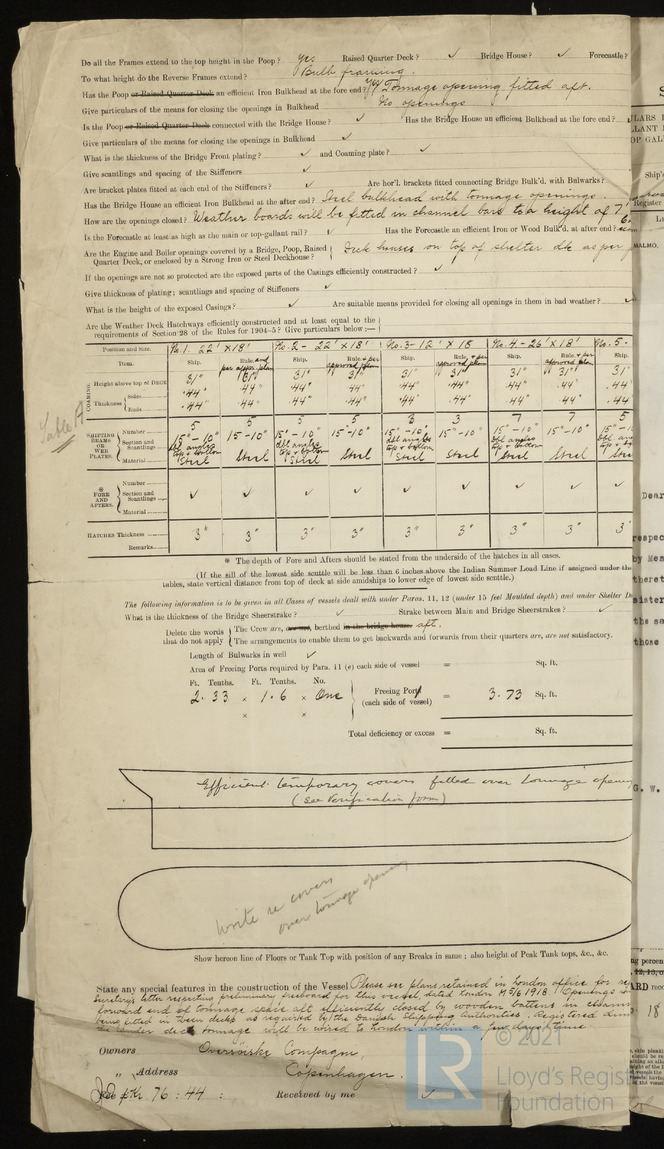 Do all the Frames extend to the top height in the Poop? yes Raised Quarter Deck? ✓ Bridge House? ✓ Forecastle?
To what height do the Reverse Frames extend? Bulb framing.
Has the Poop or Raised Quarter Deck an efficient Iron Bulkhead at the fore end? Tonnage opening fitted aft.
Give particulars of the means for closing the openings in Bulkhead No openings
Is the Poop or Raised Quarter Deck connected with the Bridge House? ✓ Has the Bridge House an efficient Bulkhead at the fore end?
Give particulars of the means for closing the openings in Bulkhead ✓
What is the thickness of the Bridge Front plating? ✓ and Coaming plate? ✓
Give scantlings and spacing of the Stiffeners? ✓
Are bracket plates fitted at each end of the Stiffeners? ✓ Are hor'l. brackets fitted connecting Bridge Bulk'd. with Bulwarks?
Has the Bridge House an efficient Iron Bulkhead at the after end? Steel bulkhead with tonnage openings.
How are the openings closed? Weather boards will be fitted in channel bars to a height of 7'
Is the Forecastle at least as high as the main or top-gallant rail? ✓ Has the Forecastle an efficient Iron or Wood Bulk'd. at after end?
Are the Engine and Boiler openings covered by a Bridge, Poop, Raised
Quarter Deck, or enclosed by a Strong Iron or Steel Deckhouse? Deck houses on top of shelter dk as per
If the openings are not so protected are the exposed parts of the Casings efficiently constructed? ✓
Give thickness of plating; scantlings and spacing of Stiffeners ✓
What is the height of the exposed Casings? ✓ Are suitable means provided for closing all openings in them in bad weather? ✓
Are the Weather Deck Hatchways efficiently constructed and at least equal to the
requirements of Section 28 of the Rules for 1904-5? Give particulars below:—
Position and Size. No. 1. 22' x 18' No. 2 - 22' x 18' No. 3 - 12' x 18 No. 4 - 26' x 18' No. 5 -
Item. Ship. Rule and per appr. plan Ship. Rule + per approved plan Ship. Rule + per approved plan Ship. Rule + per approved plan Ship.
COAMING Height above top of DECK 31" 31" 31" 31" 31" 31" 31" 31" 31"
Thickness Sides .44" .44" .44" .44" .44" .44" .44" .44" .44"
Ends .44" .44" .44" .44" .44" .44" .44" .44" .44"
Table A
SHIFTING BEAMS OR WEB PLATES. Number 5 5 5 5 3 3 7 7 5
Section and Scantlings 15"-10" dbl angles top & bottom 15"-10" 15"-10" dbl angles top & bottom 15"-10" 15"-10" dbl angles top & bottom 15"-10" 15"-10" dbl angles top & bottom 15"-10"
Material Steel Steel Steel Steel Steel Steel Steel Steel
* FORE AND AFTERS. Number
Section and Scantlings ✓ ✓ ✓ ✓ ✓ ✓ ✓ ✓ ✓
Material
HATCHES Thickness 3" 3" 3" 3" 3" 3" 3" 3" 3"
Remarks
* The depth of Fore and Afters should be stated from the underside of the hatches in all cases.
(If the sill of the lowest side scuttle will be less than 6 inches above the Indian Summer Load Line if assigned under the
tables, state vertical distance from top of deck at side amidships to lower edge of lowest side scuttle.)
The following information is to be given in all Cases of vessels dealt with under Paras. 11, 12 (under 15 feet Moulded depth) and under Shelter
What is the thickness of the Bridge Sheerstrake? ✓ Strake between Main and Bridge Sheerstrakes? ✓
Delete the words that do not apply { The Crew are, are not, berthed in the bridge house aft.
The arrangements to enable them to get backwards and forwards from their quarters are, are not satisfactory.
Length of Bulwarks in well ✓
Area of Freeing Ports required by Para. 11 (e) each side of vessel = Sq. ft.
Ft. Tenths. Ft. Tenths. No.
2.33 × 1.6 × One Freeing Port (each side of vessel) = 3.73 Sq. ft.
× ×
Total deficiency or excess = Sq. ft.
Efficient temporary covers fitted over tonnage
(see Verification form)
write re covers
over tonnage opening
Show hereon line of Floors or Tank Top with position of any Breaks in same; also height of Peak Tank tops, &c., &c.
State any special features in the construction of the Vessel Please see plans retained in London office for
Secretary's letter respecting preliminary freeboard for this vessel, dated London 5/6 1918. Openings
forward end of tonnage space all efficiently closed by wooden battens in
being fitted in 'tween decks as required by the Danish Shipping Authorities. Registered
under deck tonnage will be wired to London within a few days time.
Owners Compagni,
" Address Copenhagen.
Kr. 76 : 44 : Received by me ✓
© 2021
LR
Lloyd's Register
Foundation
Ship's
Register
MALMO.
Dear
by
those
G. W.
18